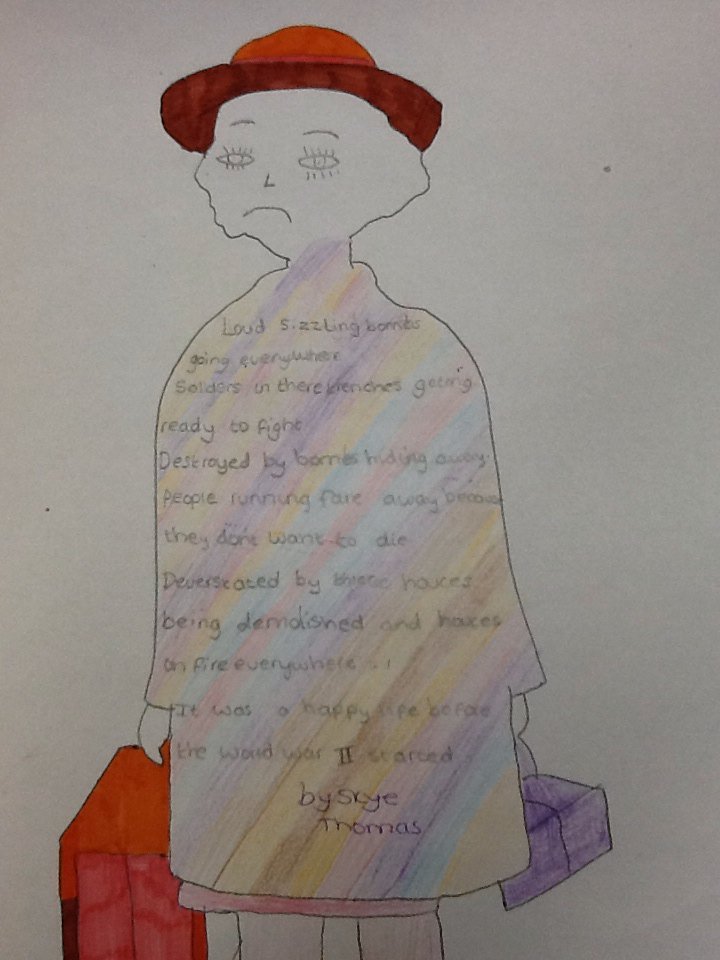 Loud sizzling bombs
going everywhere
Solders in there trenches getting
ready to fight
Destroyed by bombs hiding away.
People running fare away because
they dont want to die
Deverstated by there houces
being demolished and houces
on fire everywhere ...
It was a happy life before
the world war II started
by Skye
Thomas